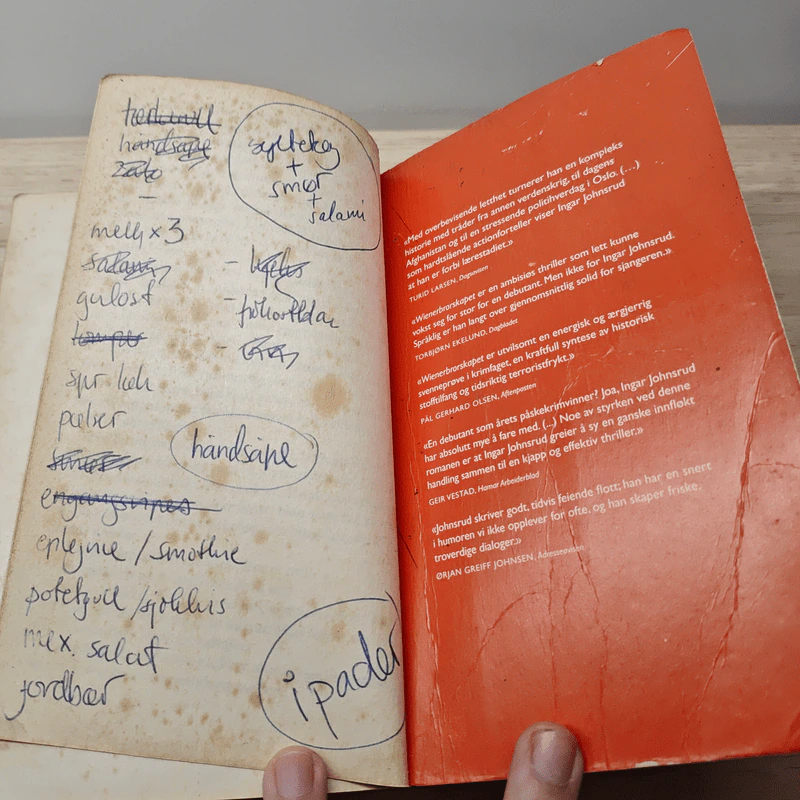 håndsåpe
syltetøy
+
smør
+
salami
melk x 3
salami
gulost
lomper
pølser
håndsåpe
engangsgriper
eplejuice / smoothie
potetgull / sjokkis
mex. salat
jordbær
ipader
«Med overbevisende letthet turnerer han en kompleks
historie med tråder fra annen verdenskrig, til dagens
Afghanistan og til en stressende politihverdag i Oslo. (…)
som hardtslående actionforteller viser Ingar Johnsrud
at han er forbi lærestadiet.»
TURID LARSEN, Dagsavisen
«Wienerbrorskapet er en ambisiøs thriller som lett kunne
vokst seg for stor for en debutant. Men ikke for Ingar Johnsrud.
Språklig er han langt over gjennomsnittlig solid for sjangeren.»
TORBJØRN EKELUND, Dagbladet
«Wienerbrorskapet er utvilsomt en energisk og ærgjerrig
svenneprøve i krimfaget, en kraftfull syntese av historisk
stofftilfang og tidsriktig terroristfrykt.»
PÅL GERHARD OLSEN, Aftenposten
«En debutant som årets påskekrimvinner? Joa, Ingar Johnsrud
har absolutt mye å fare med. (…) Noe av styrken ved denne
romanen er at Ingar Johnsrud greier å sy en ganske innfløkt
handling sammen til en kjapp og effektiv thriller.»
GEIR VESTAD, Hamar Arbeiderblad
«Johnsrud skriver godt, tidvis feiende flott; han har en snert
i humoren vi ikke opplever for ofte, og han skaper friske,
troverdige dialoger.»
ØRJAN GREIFF JOHNSEN, Adresseavisen